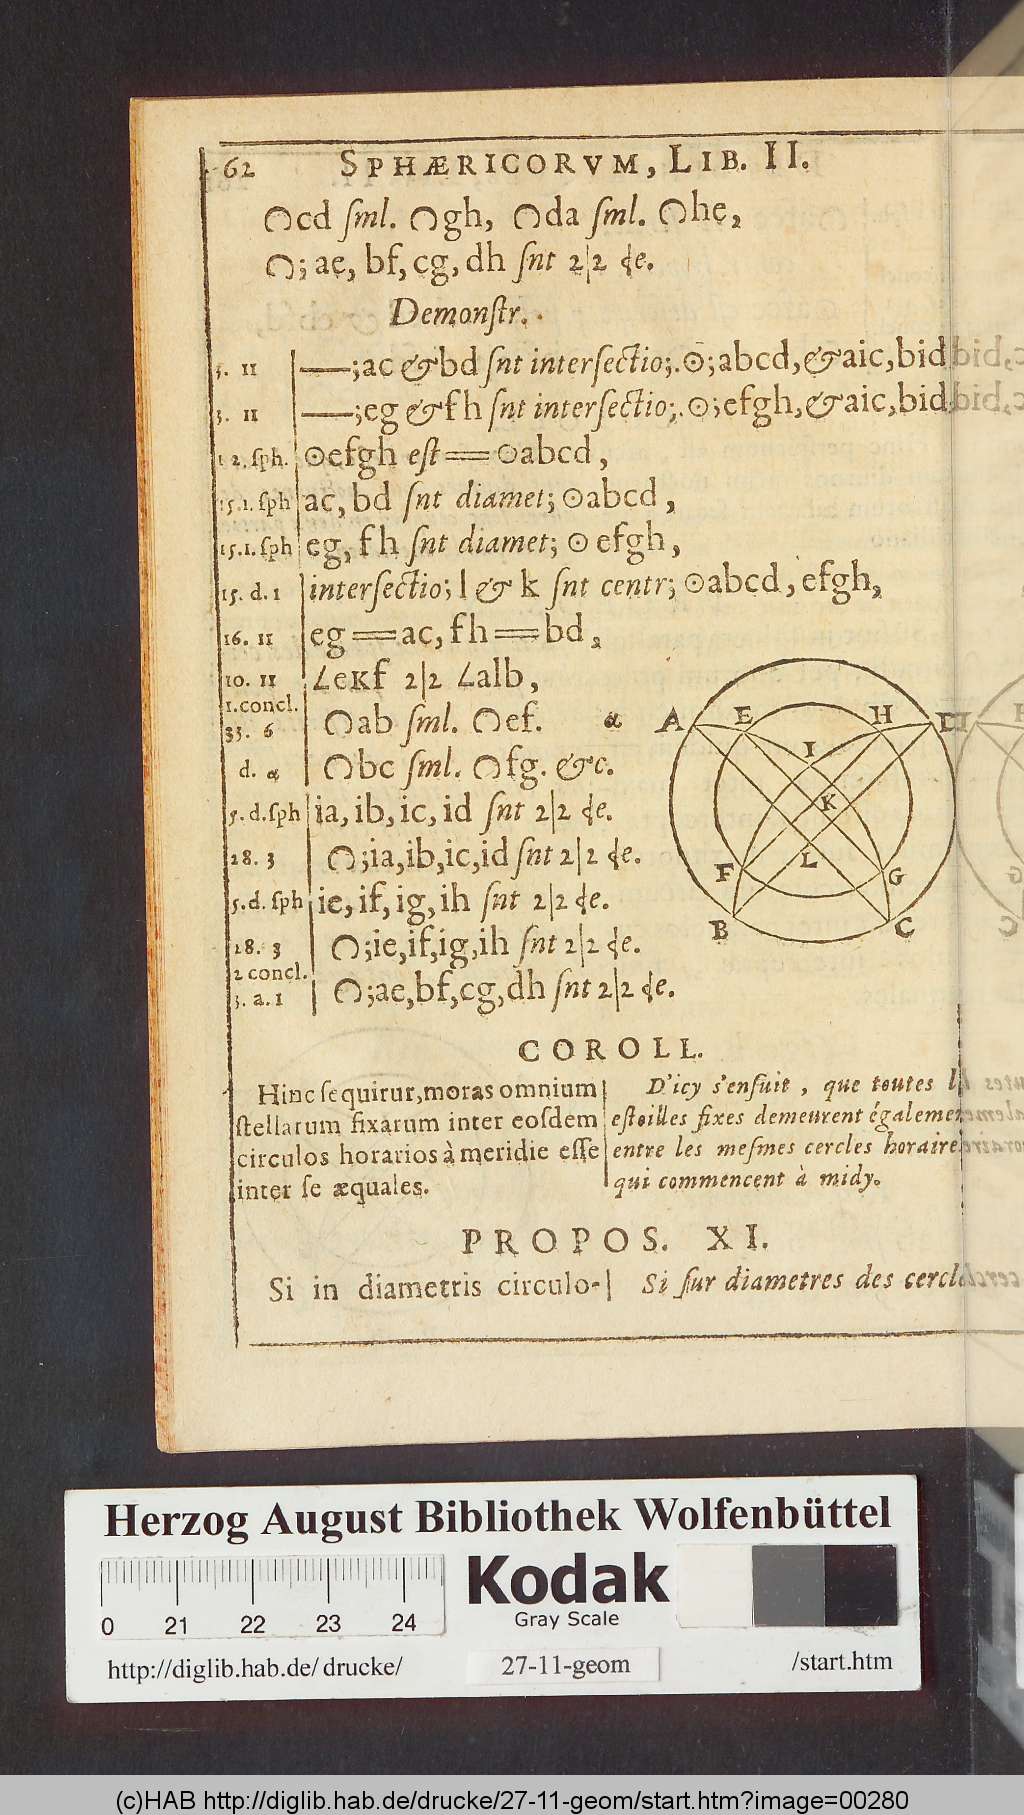 62 SPHÆRICORVM, LIB. II.
◠cd ſml. ◠gh, ◠da ſml. ◠he,
◠; ae, bf, cg, dh ſnt 2|2 de.
Demonſtr.
5. 11 —;ac & bd ſnt interſectio;. ⊙;abcd, & aic, bid
3. 11 —;eg & fh ſnt interſectio;. ⊙;efgh, & aic, bid
1 2. ſph. ⊙efgh eſt == ⊙abcd,
15.1. ſph ac, bd ſnt diamet; ⊙abcd,
15.1. ſph eg, fh ſnt diamet; ⊙ efgh,
15. d. 1 interſectio; l & k ſnt centr; ⊙abcd, efgh,
16. 11 eg == ac, fh == bd,
10. 11 ∠eKf 2|2 ∠alb,
1.concl.
33. 6 ◠ab ſml. ◠ef. α
d. α ◠bc ſml. ◠fg. &c.
5. d. ſph ia, ib, ic, id ſnt 2|2 de.
28. 3 ◠;ia,ib,ic,id ſnt 2|2 de.
5. d. ſph ie, if, ig, ih ſnt 2|2 de.
28. 3 ◠;ie,if,ig,ih ſnt 2|2 de.
2 concl.
3. a. 1 ◠;ae,bf,cg,dh ſnt 2|2 de.
A E H D
I
K
F L G
B C
COROLL.
Hinc ſequirur, moras omnium
ſtellarum fixarum inter eoſdem
circulos horarios à meridie eſſe
inter ſe æquales.
D'icy s'enſuit, que toutes l
eſtoilles fixes demeurent égaleme
entre les meſmes cercles horaire
qui commencent à midy.
PROPOS. XI.
Si in diametris circulo-
Si ſur diametres des cercl
Herzog August Bibliothek Wolfenbüttel
0 21 22 23 24
Kodak
Gray Scale
http://diglib.hab.de/ drucke/ 27-11-geom /start.htm
(c)HAB http://diglib.hab.de/drucke/27-11-geom/start.htm?image=00280